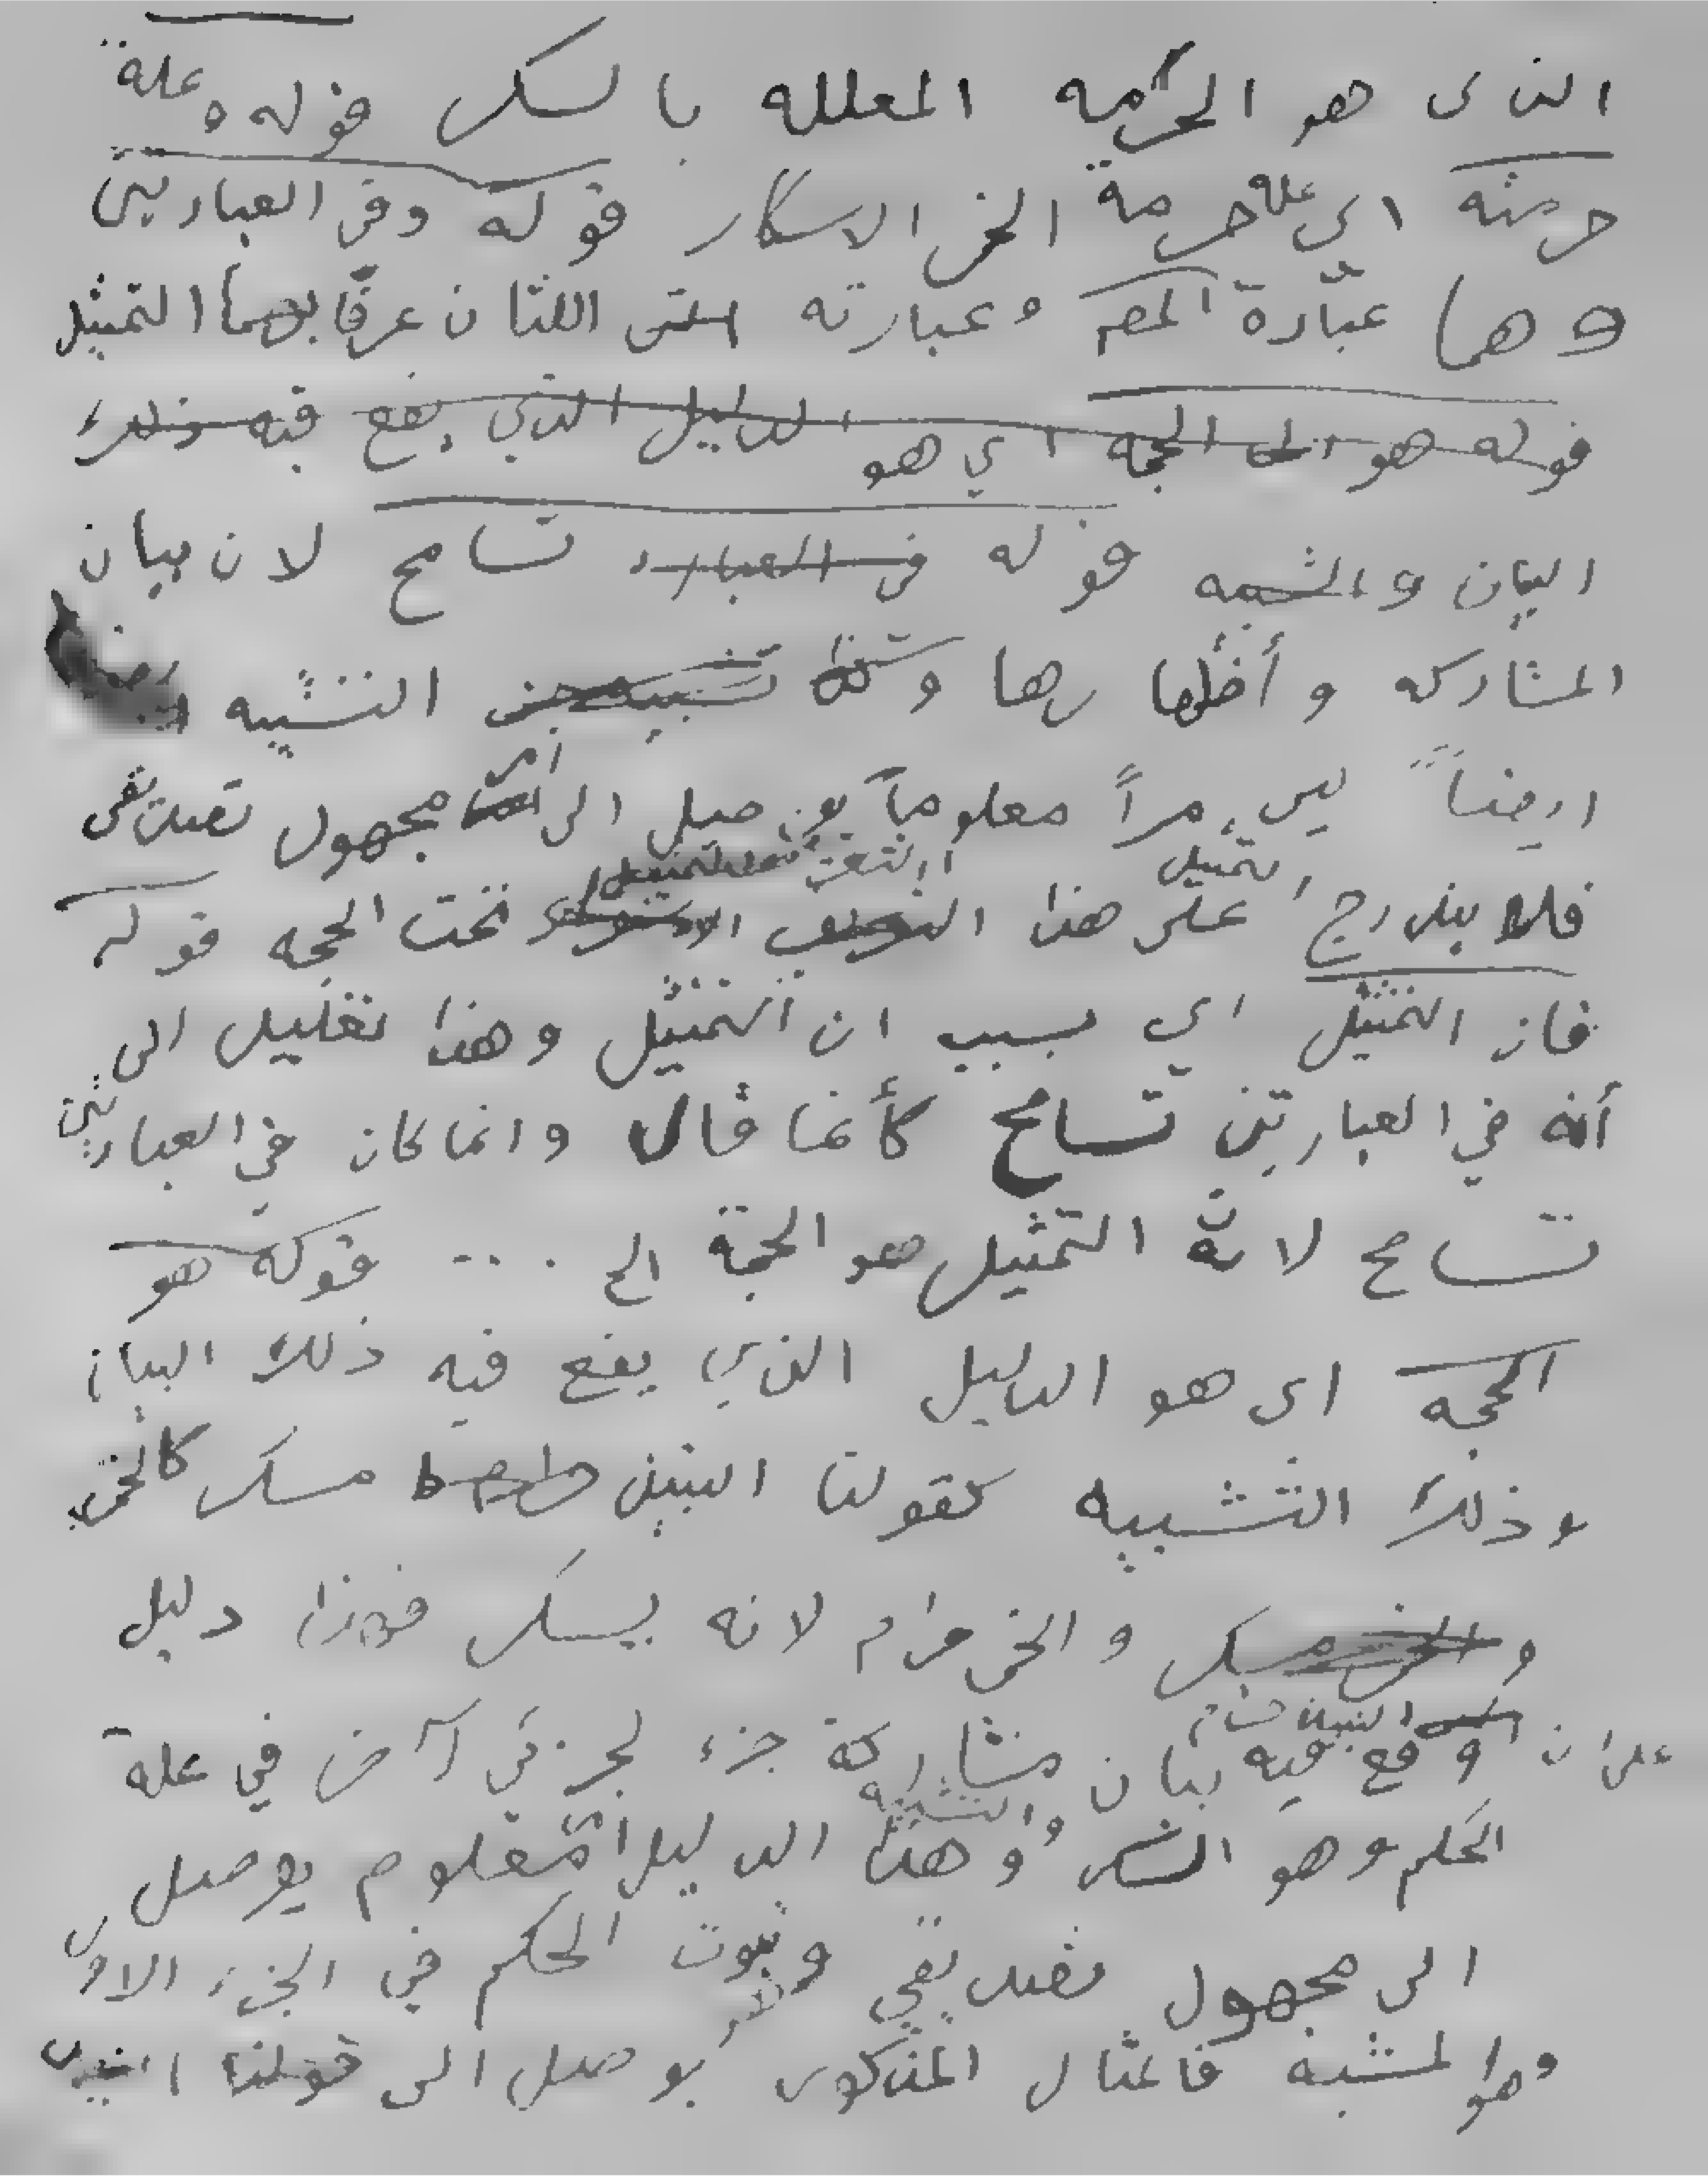 الذى هو الحرمه المعلله بالسكر قوله وعلة
حرمته اى علة حرمة الخمر الاسكار قوله وفى العبارتين
وهما عبارة المصـ وعبارته التى اللتان عرفا بهما التمثيل
قوله هو الحجه اي هو الدليل الذي يقع فيه ذلك
البيان والتشبيه قوله فى العباره تسامح لان بيان
المشاركه وأظهارها وكذا التشبيه
ايضاً ليس امراً معلوماً يوصل الى امر مجهول تصديقى
فلا يندرج التمثيل على هذا التعريف تحت الحجه قوله
فان التمثيل اي بسبب ان التمثيل وهذا تعليل الى
أنه في العبارتين تسامح كأنما قال وانما كان في العبارتين
تسامح لانه التمثيل هو الحجة الخ .... قوله هو
الحجه اى هو الدليل الذي يقع فيه ذلك البيان
وذلك التشبيه كقولنا النبيذ حرام مسكر كالخمر
والخمر مسكر والخمر حرام لانه يسكر فهذا دليل
على ان النبيذ حرام وقع فيه بيان مشاركة جزء لجزئي آخر في علة
الحكم وهو السكر والتشبيه وهذا الدليل امر معلوم يوصل
الى مجهول تصديقي وثبوت الحكم في الجزء الاول
وهو المشبه فالمثال المذكور يوصل الى قولنا النبيذ